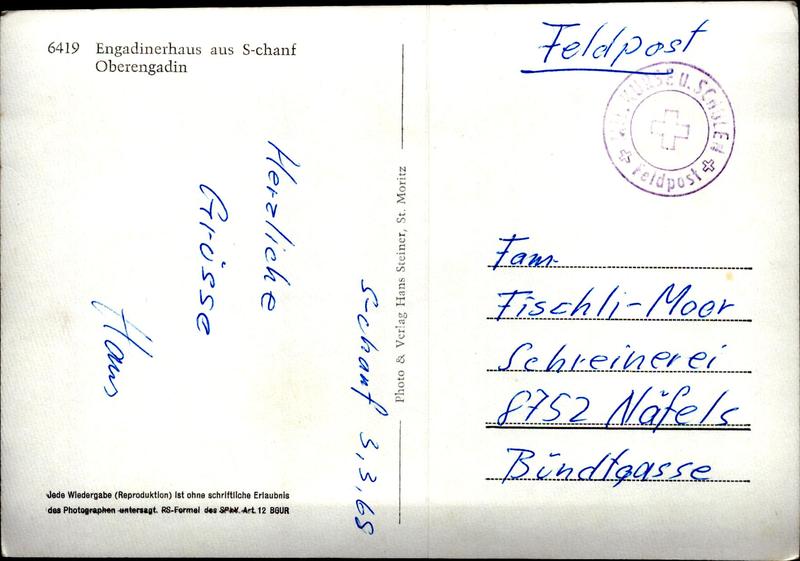 6419 Engadinerhaus aus S-chanf
Oberengadin
S-chanf 3.3.69
Herzliche
Grüsse
Hans
Jede Wiedergabe (Reproduktion) ist ohne schriftliche Erlaubnis
des Photographen untersagt. RS-Formel des SPhV. Art. 12 BGUR
Photo & Verlag Hans Steiner, St. Moritz
Feldpost
KURSE U. SCHULEN
Feldpost
Fam.
Fischli-Moor
Schreinerei
8752 Näfels
Bündtgasse